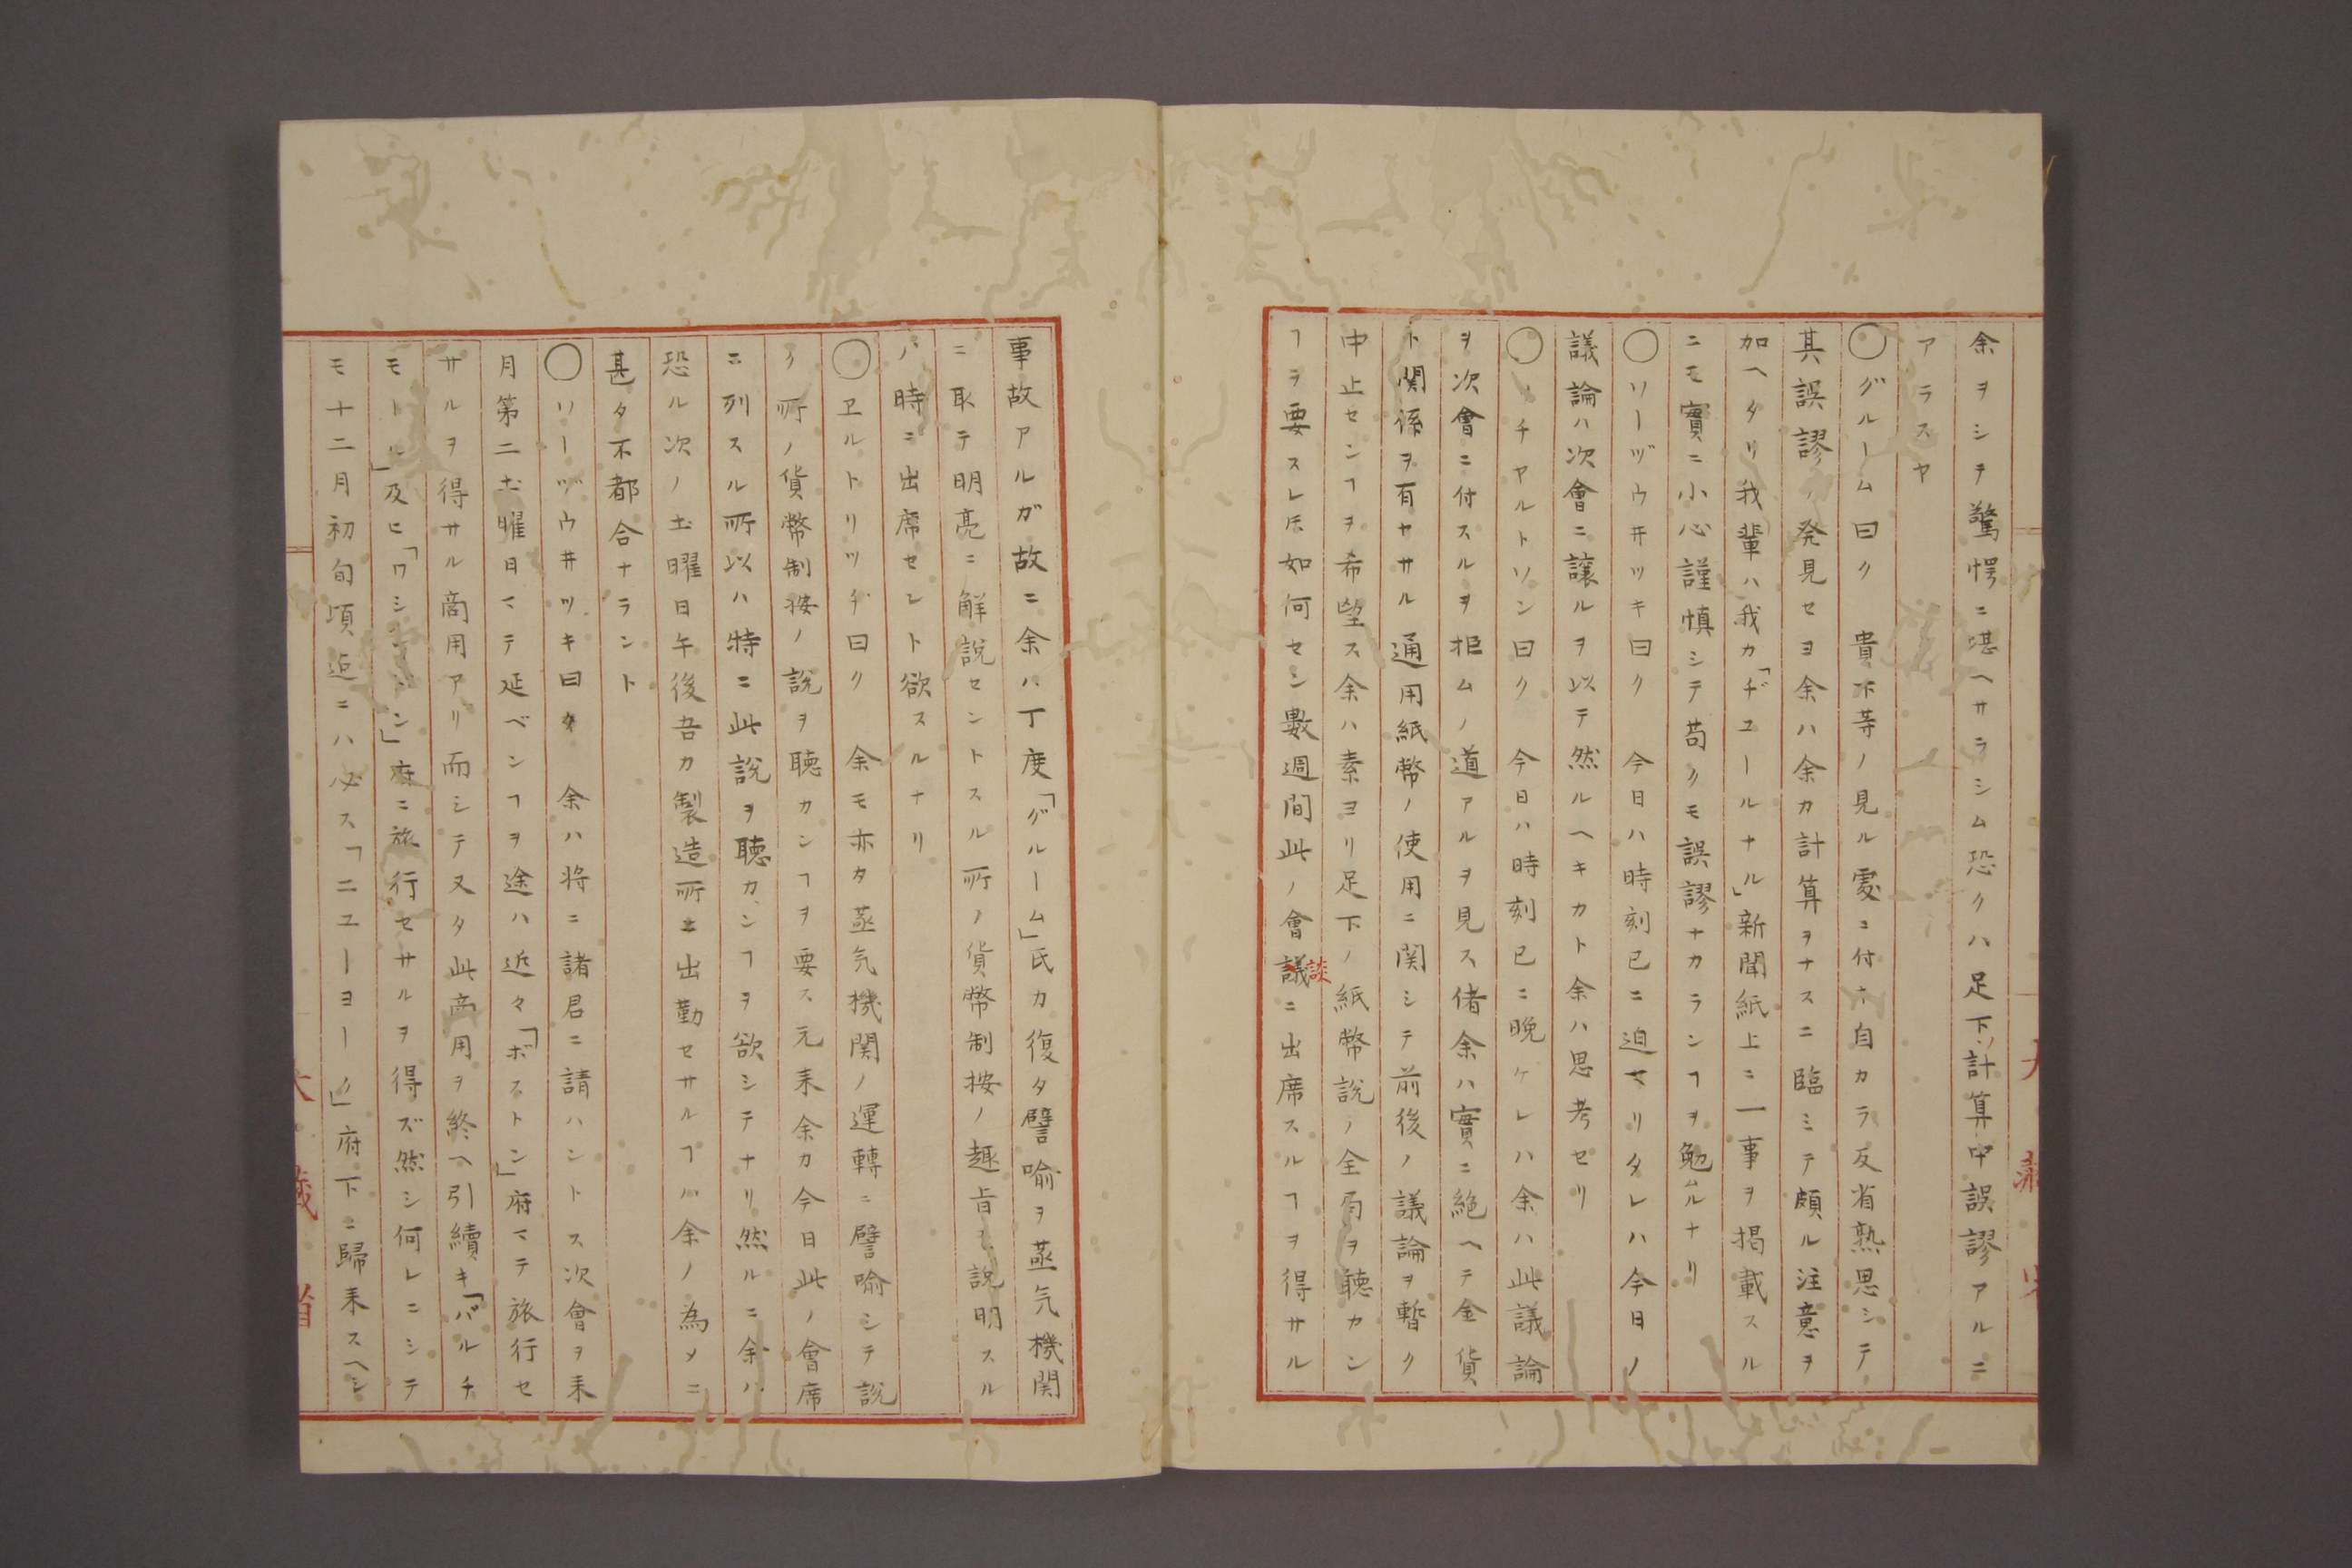 余ヲシテ驚愕ニ堪ヘサラシム恐クハ足下ノ計算中誤謬アルニ
アラスヤ
〇グルーム曰ク 貴下等ノ見ル處ニ付キ自カラ反省熟思シテ
其誤謬ノ発見セヨ余ハ余カ計算ヲナスニ臨ミテ頗ル注意ヲ
加ヘタリ我輩ハ我カ「ヂユールナル」新聞紙上ニ一事ヲ掲載スル
ニモ實ニ小心謹慎シテ苟クモ誤謬ナカランヿヲ勉ムルナリ
〇ソーヅウ井ツキ曰ク 今日ハ時刻已ニ迫マリタレハ今日ノ
議論ハ次會ニ譲ルヲ以テ然ルヘキカト余ハ思考セリ
〇リチヤルトソン曰ク 今日ハ時刻已ニ晩ケレハ余ハ此議論
ヲ次會ニ付スルヲ拒ムノ道アルヲ見ス偖余ハ實ニ絶ヘテ金貨
ト関係ヲ有セサル通用紙幣ノ使用ニ関シテ前後ノ議論ヲ暫ク
中止センヿヲ希望ス余ハ素ヨリ足下ノ紙幣説ノ全局ヲ聴カン
ヿヲ要スレ𪜈如何セン數週間此ノ會議談ニ出席スルヿヲ得サル
事故アルガ故ニ余ハ丁度「グルーム」氏カ復タ譬喩ヲ蒸気機関
ニ取テ明亮ニ解説セントスル所ノ貨幣制按ノ趣旨ヲ説明スル
ノ時ニ出席セント欲スルナリ
〇ヱルトリツヂ曰ク 余モ亦タ蒸気機関ノ運轉ニ譬喩シテ説
ク所ノ貨幣制按ノ説ヲ聴カンヿヲ要ス元来余カ今日此ノ會席
ニ列スル所以ハ特ニ此説ヲ聴カンヿヲ欲シテナリ然ルニ余ハ
恐ル次ノ土曜日午後吾カ製造所ニ出勤セサルヿハ余ノ為メニ
甚タ不都合ナラント
〇ソーヅウ井ツキ曰ク 余ハ将ニ諸君ニ請ハントス次會ヲ来
月第二土曜日マテ延ベンヿヲ途ハ近々「ボストン」府マテ旅行セ
サルヲ得サル商用アリ而シテ又タ此商用ヲ終ヘ引續キ「バルチ
モール」及ヒ「ワシントン」府ニ旅行セサルヲ得ズ然シ何レニシテ
モ十二月初旬頃迠ニハ必ス「ニユーヨーク」府下ニ歸来スヘシ
大蔵省